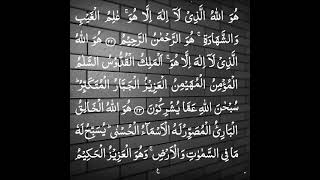 هُوَ اللهُ الَّذِیْ لَاۤ اِلٰهَ اِلَّا هُوَ ۚ عٰلِمُ الْغَیْبِ
وَالشَّهَادَةِ ۚ هُوَ الرَّحْمٰنُ الرَّحِیْمُ ﴿۲۲﴾ هُوَ اللهُ
الَّذِیْ لَاۤ اِلٰهَ اِلَّا هُوَ ۚ اَلْمَلِكُ الْقُدُّوْسُ السَّلٰمُ
الْمُؤْمِنُ الْمُهَیْمِنُ الْعَزِیْزُ الْجَبَّارُ الْمُتَكَبِّرُ ؕ
سُبْحٰنَ اللهِ عَمَّا یُشْرِكُوْنَ ﴿۲۳﴾ هُوَ اللهُ الْخَالِقُ
الْبَارِئُ الْمُصَوِّرُ لَهُ الْاَسْمَآءُ الْحُسْنٰی ؕ یُسَبِّحُ لَهٗ
مَا فِی السَّمٰوٰتِ وَالْاَرْضِ ۚ وَهُوَ الْعَزِیْزُ الْحَكِیْمُ